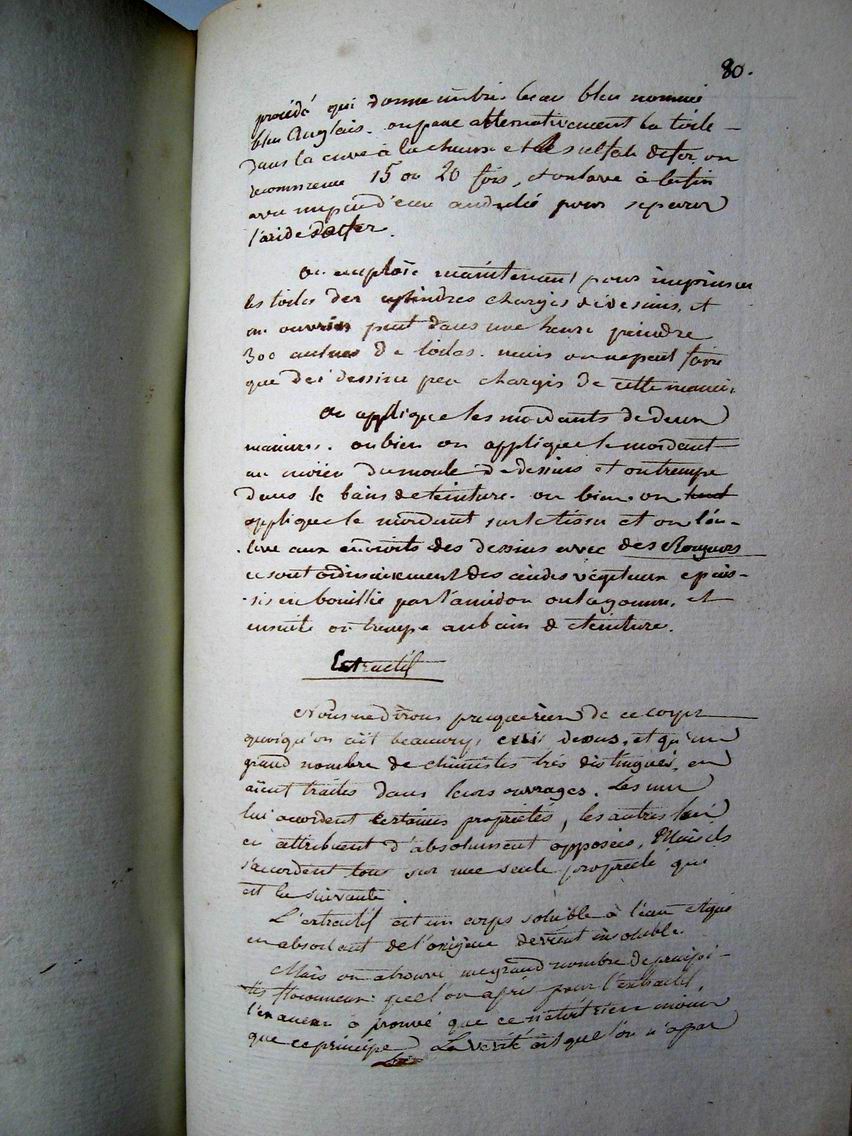 80.
procédé qui donne un très beau bleu nommé
bleu Anglais. on passe alternativement la toile
dans la cuve à la chaux et le sulfate de fer, on
recommence 15 ou 20 fois, et on lave à la fin
avec un peu d'eau acidulée pour séparer
l'oxide de fer.
On emploïe maintenant pour imprimer
les toiles des cylindres chargés de dessins, et
un ouvrier peut dans une heure peindre
300 aulnes de toiles. mais on ne peut faire
que des dessins peu chargés de cette manière.
On applique les mordants de deux
manières. ou bien on applique le mordant
au moïen du moule de dessins et on trempe
dans le bain de teinture. ou bien on
applique le mordant sur le tissu et on l'en-
lève aux endroits des dessins avec des Rongeurs
ce sont ordinairement des acides végétaux épais-
sis en bouillie par l'amidon ou la gomme, et
ensuite on trempe au bain de teinture.
Extractif
Nous ne dirons presque rien de ce corps
quoiqu'on ait beaucoup écrit dessus, et qu'un
grand nombre de chimistes très distingués, en
aient traités dans leurs ouvrages. Les uns
lui accordent certaines propriétés, les autres lui
en attribuent d'absolument opposées. Mais ils
s'accordent tous sur une seule propriété qui
est la suivante.
L'extractif est un corps soluble à l'eau et qui
en absorbant de l'oxigène devient insoluble.
Mais on a trouvé un grand nombre de précipi-
tés floconneux que l'on a pris pour l'extractif,
l'examen a prouvé que ce n'était rien moins
que ce principe. La vérité est que l'on n'a pas